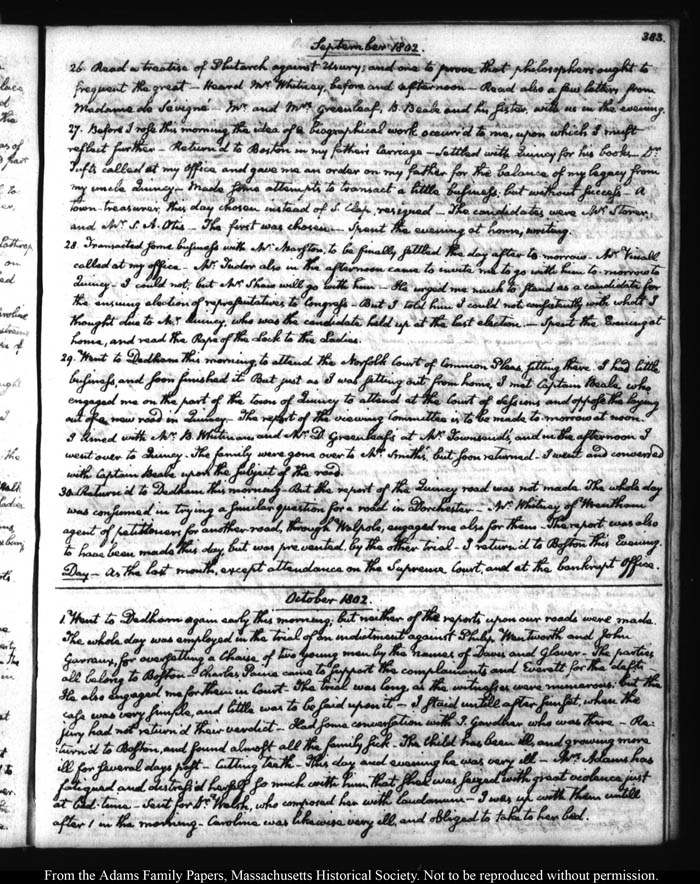 383.
September 1802.
26. Read a treatise of Plutarch against Usury; and one to prove that philosophers ought to
frequent the great — Heard Mr Whitney, before and afternoon — Read also a few letters from
Madame de Sevigne — Mr and Mrs Greenleaf, B. Beale and his sister, with us in the evening.
27. Before I rose this morning the idea of a biographical work occurr'd to me, upon which I must
reflect further — Return'd to Boston in my father's carriage — Settled with Quincy for his books — Dr
Tufts called at my Office and gave me an order on my father for the balance of my legacy from
my uncle Quincy — Made some attempts to transact a little business; but without success — A
town-treasurer, this day chosen instead of S. Clap, resigned — The candidates were Mr Storer,
and Mr S. A. Otis — The first was chosen — Spent the evening at home, writing.
28. Transacted some business with Mr to be finally settled the day after to morrow — Mr Vinall
called at my office — Mr Tudor also in the afternoon came to invite me to go with him to morrow to
Quincy — I could not, but Mr Shaw will go with him — He urged me much to stand as a candidate for
the ensuing election of representatives to Congress — But I told him I could not consistently with what I
thought due to Mr Quincy, who was the candidate held up at the last election — Spent the Evening at
home, and read the Rape of the Lock to the Ladies.
29. Went to Dedham this morning, to attend the Norfolk Court of Common Pleas, sitting there. I had little
business, and soon finished it. But just as I was setting out from home, I met Captain Beale, who
engaged me on the part of the town of Quincy to attend at the Court of Sessions and oppose the laying
out of a new road in Quincy — The report of the viewing Committee is to be made to morrow at noon.
I dined with Mr B. Whitman and Mr D. Greenleaf at Mr Townsend's, and in the afternoon I
went over to Quincy. The family were gone over to Mrs Smith's, but soon returned — I went and conversed
with Captain Beale upon the subject of the road.
30. Return'd to Dedham this morning — But the report of the Quincy road was not made. The whole day
was consumed in trying a similar question for a road in Dorchester — Mr Whitney of Wrentham
agent of petitioners for another road, through Walpole, engaged me also for them — The report was also
to have been made this day, but was prevented, by the other trial — I return'd to Boston this Evening.
Day — As the last month, except attendance on the Supreme Court, and at the bankrupt Office.
October 1802.
1. Went to Dedham again early this morning; but neither of the reports upon our roads were made.
The whole day was employed in the trial of an indictment against Philip Wentworth and John
for oversetting a Chaise of two young men by the names of Davis and Glover — The parties
all belong to Boston — Charles Paine came to support the complainants and Everett for the defts —
He also engaged me for them in Court — The trial was long, as the witnesses were numerous; but the
case was very simple, and little was to be said upon it — I staid untill after sunset, when the
jury had not return'd their verdict — Had some conversation with J. Gardner who was there — Re-
turn'd to Boston, and found almost all the family sick. The child has been ill, and growing more
ill for several days past — Cutting teeth — This day and evening he was very ill — Mrs Adams has
fatigued and distress'd herself so much with him, that she was seized with great violence just
at bed-time — Sent for Dr Welsh, who composed her with laudanum — I was up with them untill
after 1 in the morning — Caroline was likewise very ill, and obliged to take to her bed.
From the Adams Family Papers, Massachusetts Historical Society. Not to be reproduced without permission.